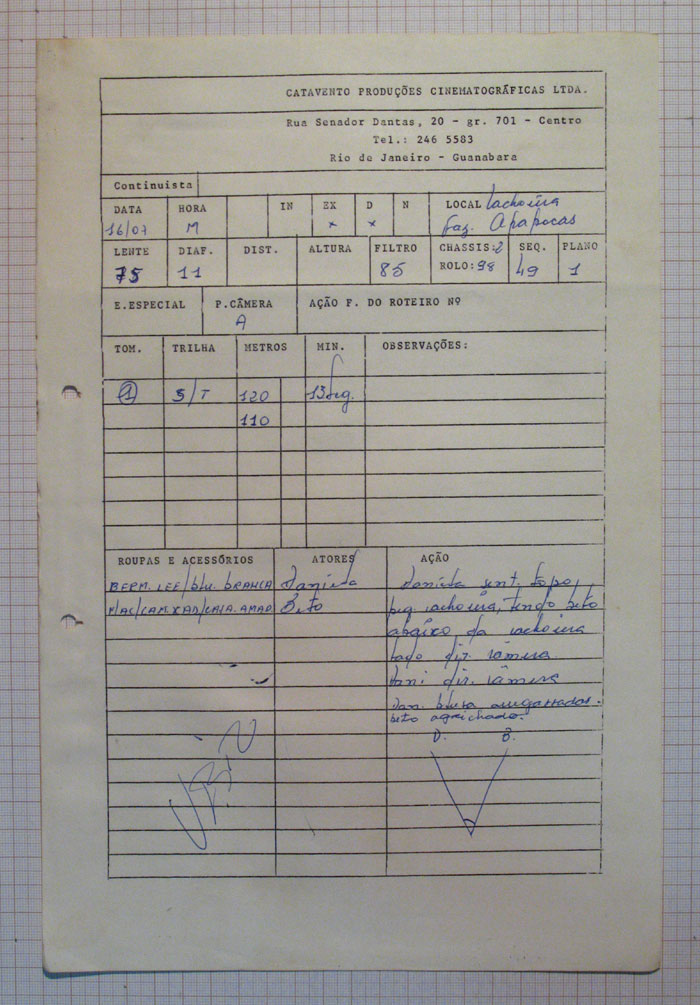 CATAVENTO PRODUÇÕES CINEMATOGRÁFICAS LTDA.
Rua Senador Dantas, 20 - gr. 701 - Centro
Tel.: 246 5583
Rio de Janeiro - Guanabara
Continuista
DATA HORA IN EX D N LOCAL cachoeira
16/07 M x x faz. Apapocas
LENTE DIAF. DIST. ALTURA FILTRO CHASSIS:2 SEQ. PLANO
75 11 85 ROLO:98 49 1
E.ESPECIAL P.CÂMERA AÇÃO F. DO ROTEIRO Nº
A
TOM. TRILHA METROS MIN. OBSERVAÇÕES:
1 S/T 120 13seg.
110
ROUPAS E ACESSÓRIOS ATORES AÇÃO
BERM. LEE/blu. BRANCA Daniela Daniela sent. topo,
CAM.XAD/ Beto peq. cachoeira, tendo beto
abaixo da cachoeira
lado dir. câmera
Dani dir. câmera
Dan. blusa
beto agaichado.
D. B.